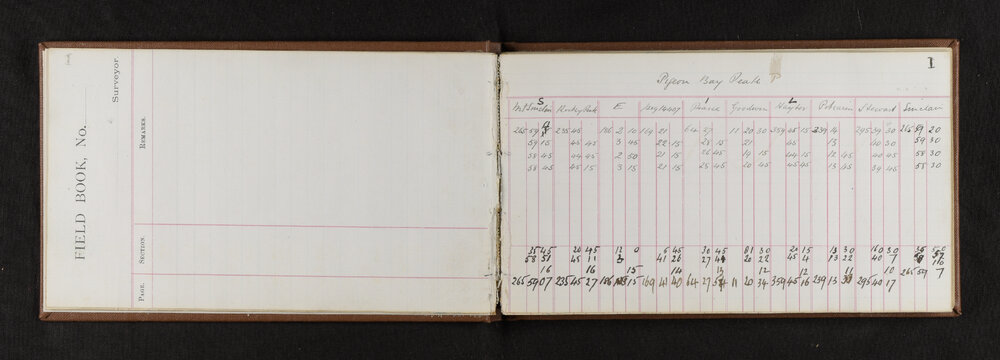 FIELD BOOK, No.
Surveyor.
REMARKS.
SECTION.
PAGE.
1
Pigeon Bay Peak P
S I L
Mt Sinclair Rocky Peak E Goodwin Naylor Stewart Sinclair
265 59 235 45 186 2 10 169 21 64 27 11 20 30 359 45 15 239 14 295 39 30 265 59 20
59 15 45 45 3 45 22 15 28 15 21 45 13 40 30 59 30
58 45 44 45 2 50 21 15 26 45 19 15 44 15 12 45 40 45 58 30
58 45 45 15 3 15 21 15 28 45 20 45 45 45 13 45 39 45 58 30
25 45 20 45 12 0 6 45 30 45 81 30 20 15 13 30 160 30
58 51 45 11 3 41 26 27 41 20 22 45 4 13 22 40 7
16 16 15 14 13 12 12 11 10 265 59 7
265 59 07 235 45 27 186 15 169 41 40 64 27 54 11 20 34 359 45 16 239 13 33 295 40 17